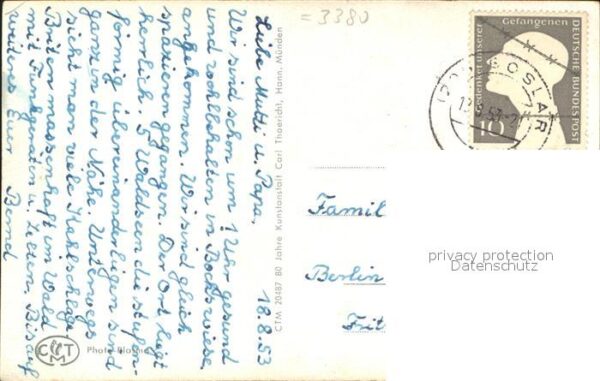 = 3380
18.8.53
Liebe Mutti u. Papa.
Wir sind schon um 1 Uhr gesund
und wohlbehalten in Bockswiese
angekommen. Wir sind gleich
spazieren gegangen. Der Ort liegt
herrlich. 5 Waldseen die stufen-
förmig übereinanderliegen sind
ganz in der Nähe. Unterwegs
sieht man viele Kahlschläge,
Briten massenhaft im Wald
mit Funkgeräten u. Zelten. Bis auf
weiteres Euer Bernd
CTM 20487 80 Jahre Kunstanstalt Carl Thoericht, Hann. Münden
CTM
Photo
Gedenket unserer Gefangenen
DEUTSCHE BUNDESPOST
10
GOSLAR
Famil
Berlin
Frit
privacy protection
Datenschutz